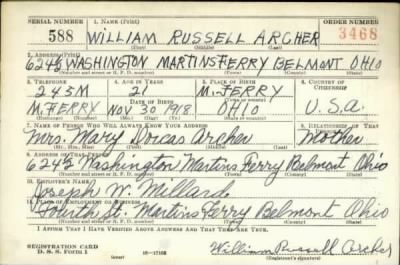 SERIAL NUMBER 1. NAME (Print) ORDER NUMBER
588 WILLIAM RUSSELL ARCHER 3468
(First) (Middle) (Last)
2. ADDRESS (Print)
624½ WASHINGTON MARTINS FERRY BELMONT OHIO
(Number and street or R. F. D. number) (Town) (County) (State)
3. TELEPHONE 4. AGE IN YEARS 5. PLACE OF BIRTH 6. COUNTRY OF CITIZENSHIP
243M 21 M. FERRY
DATE OF BIRTH (Town or county)
M. FERRY NOV 30 1918 OHIO U.S.A.
(Exchange) (Number) (Mo.) (Day) (Yr.) (State or country)
7. NAME OF PERSON WHO WILL ALWAYS KNOW YOUR ADDRESS 8. RELATIONSHIP OF THAT PERSON
Mrs. Mary Dorcas Archer Mother
(Mr., Mrs., Miss) (First) (Middle) (Last)
9. ADDRESS OF THAT PERSON
624½ Washington Martins Ferry Belmont Ohio
(Number and street or R. F. D. number) (Town) (County) (State)
10. EMPLOYER'S NAME
Joseph W. Millard
11. PLACE OF EMPLOYMENT OR BUSINESS
Fourth St. Martins Ferry Belmont Ohio
(Number and street or R. F. D. number) (Town) (County) (State)
I AFFIRM THAT I HAVE VERIFIED ABOVE ANSWERS AND THAT THEY ARE TRUE.
REGISTRATION CARD
D. S. S. FORM 1 (over) 16—17105 William Russell Archer
(Registrant's signature)